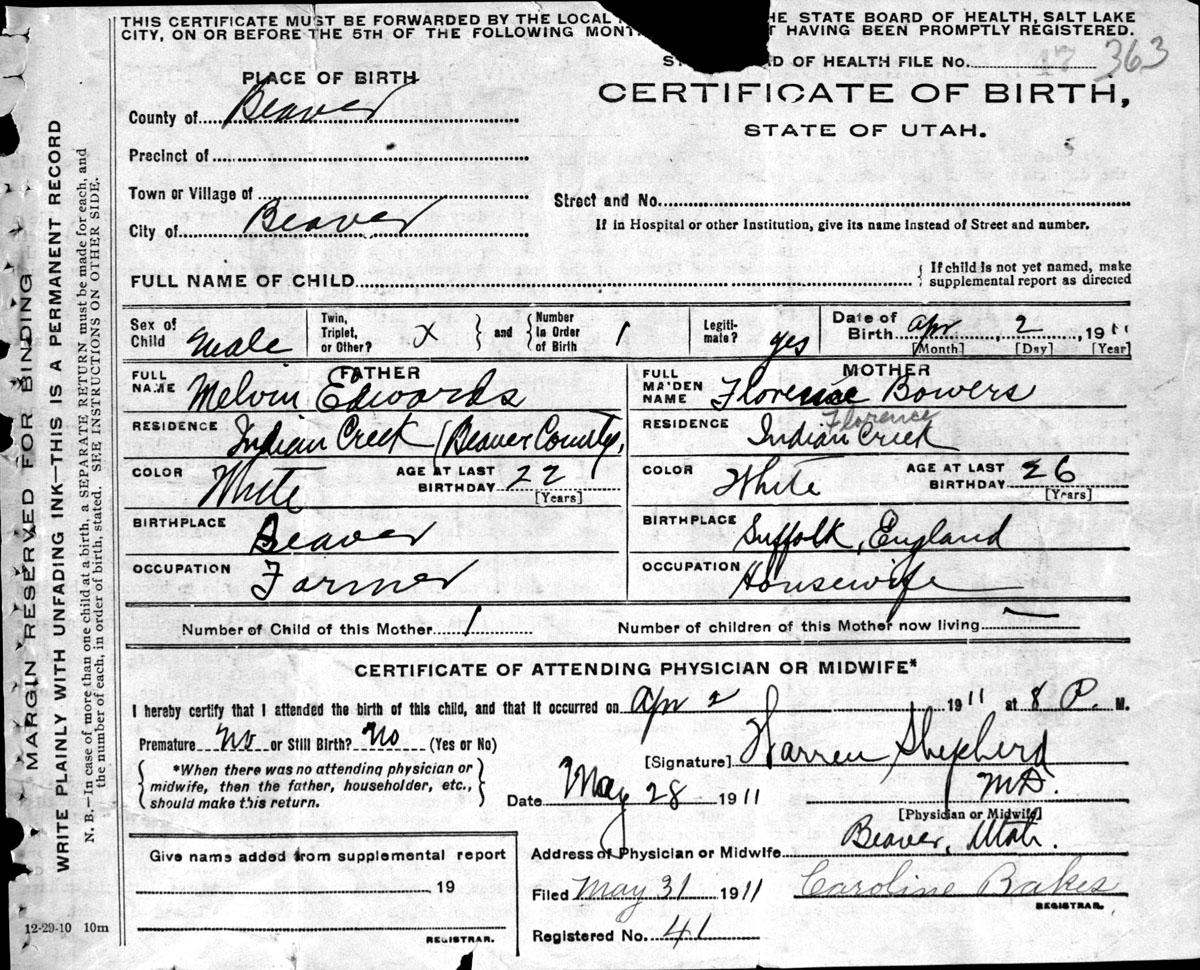 THIS CERTIFICATE MUST BE FORWARDED BY THE LOCAL HE STATE BOARD OF HEALTH, SALT LAKE
CITY, ON OR BEFORE THE 5TH OF THE FOLLOWING MONT T HAVING BEEN PROMPTLY REGISTERED.
ST D OF HEALTH FILE No. 17 363
PLACE OF BIRTH
CERTIFICATE OF BIRTH,
STATE OF UTAH.
County of Beaver
Precinct of
Town or Village of
Street and No.
City of Beaver
If in Hospital or other Institution, give its name instead of Street and number.
FULL NAME OF CHILD { If child is not yet named, make
supplemental report as directed
Sex of Child Male Twin, Triplet, or Other? X } and { Number in Order of Birth 1 Legiti- mate? yes Date of Birth Apr 2, 1911
[Month] [Day] [Year]
FATHER MOTHER
FULL NAME Melvin Edwards FULL MAIDEN NAME Florence Bowers
Florence
RESIDENCE Indian Creek (Beaver County, RESIDENCE Indian Creek
COLOR White AGE AT LAST BIRTHDAY 22 [Years] COLOR White AGE AT LAST BIRTHDAY 26 [Years]
BIRTHPLACE Beaver BIRTHPLACE Suffolk, England
OCCUPATION Farmer OCCUPATION Housewife
Number of Child of this Mother 1 Number of children of this Mother now living —
CERTIFICATE OF ATTENDING PHYSICIAN OR MIDWIFE*
I hereby certify that I attended the birth of this child, and that it occurred on Apr 2 1911 at 8 P. M.
Premature No or Still Birth? No (Yes or No)
[Signature] Warren Shepherd
{ *When there was no attending physician or
midwife, then the father, householder, etc.,
should make this return. }
Date May 28 1911 M.D.
[Physician or Midwife]
Address of Physician or Midwife Beaver, Utah.
Give name added from supplemental report
19
REGISTRAR.
Filed May 31 1911 Caroline Bakes
REGISTRAR.
Registered No. 41
12-29-10 10m
MARGIN RESERVED FOR BINDING
WRITE PLAINLY WITH UNFADING INK—THIS IS A PERMANENT RECORD
N. B.—In case of more than one child at a birth, a SEPARATE RETURN must be made for each, and
the number of each, in order of birth, stated. SEE INSTRUCTIONS ON OTHER SIDE.